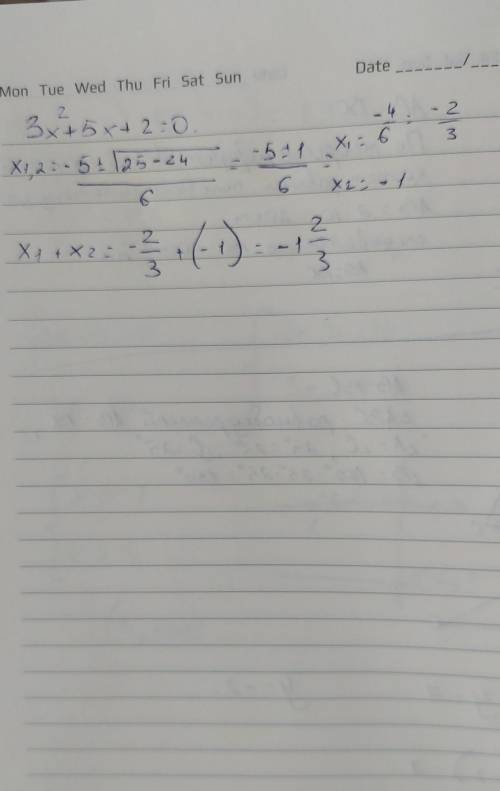 Mon Tue Wed Thu Fri Sat Sun
Date _______/___
3x²+5x+2=0.
x1,2=-5±√25-24/6 = -5±1/6 = x1=-4/6=-2/3
x2=-1
x1+x2=-2/3+(-1)=-1 2/3